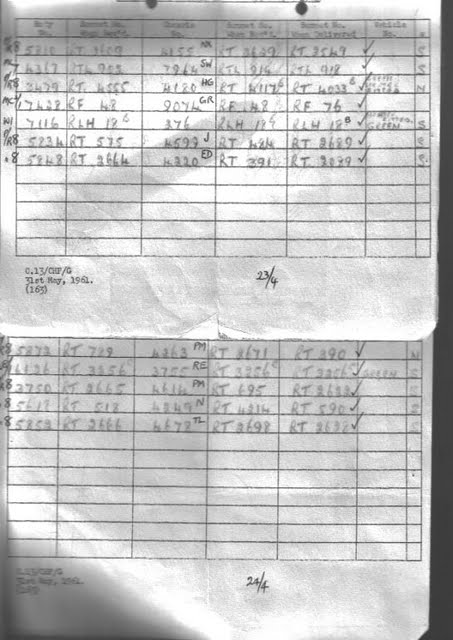 Body No. Bonnet No. When Rec'd. Chassis No. Bonnet No. When Delivered Vehicle No.
R8 5810 RT 2609 4155 NX RT 2629 RT 2549 ✓ S
4267 RTL 903 7964 SW RTL 914 RTL 918 ✓ S
R8 3479 RT 4555 4180 HG RT 4117 RT 4033 ✓ N
17428 RF 48 9074 GR RF 48 RF 76 ✓
WI 7116 RLH 18 376 RLH 18 RLH 18 B ✓ GREEN S
R8 5834 RT 575 4597 J RT 484 RT 2689 ✓ S
8 5848 RT 2664 4320 ED RT 391 RT 2029 ✓ S.
C.13/CHF/G
31st May, 1961.
(163)
23/4
8 5873 RT 729 4363 PM RT 2671 RT 390 ✓ N
RT 3256 3755 RE RT 3256 RT 3256 ✓ GREEN S
R8 3750 RT 2665 4614 PM RT 695 ✓ S
8 5617 RT 518 4349 N RT 4214 RT 590 ✓ S
8 5853 RT 2666 4678 TL RT 2698 RT 2638 ✓ S
C.13/CHF/G
31st May, 1961.
(163)
24/4